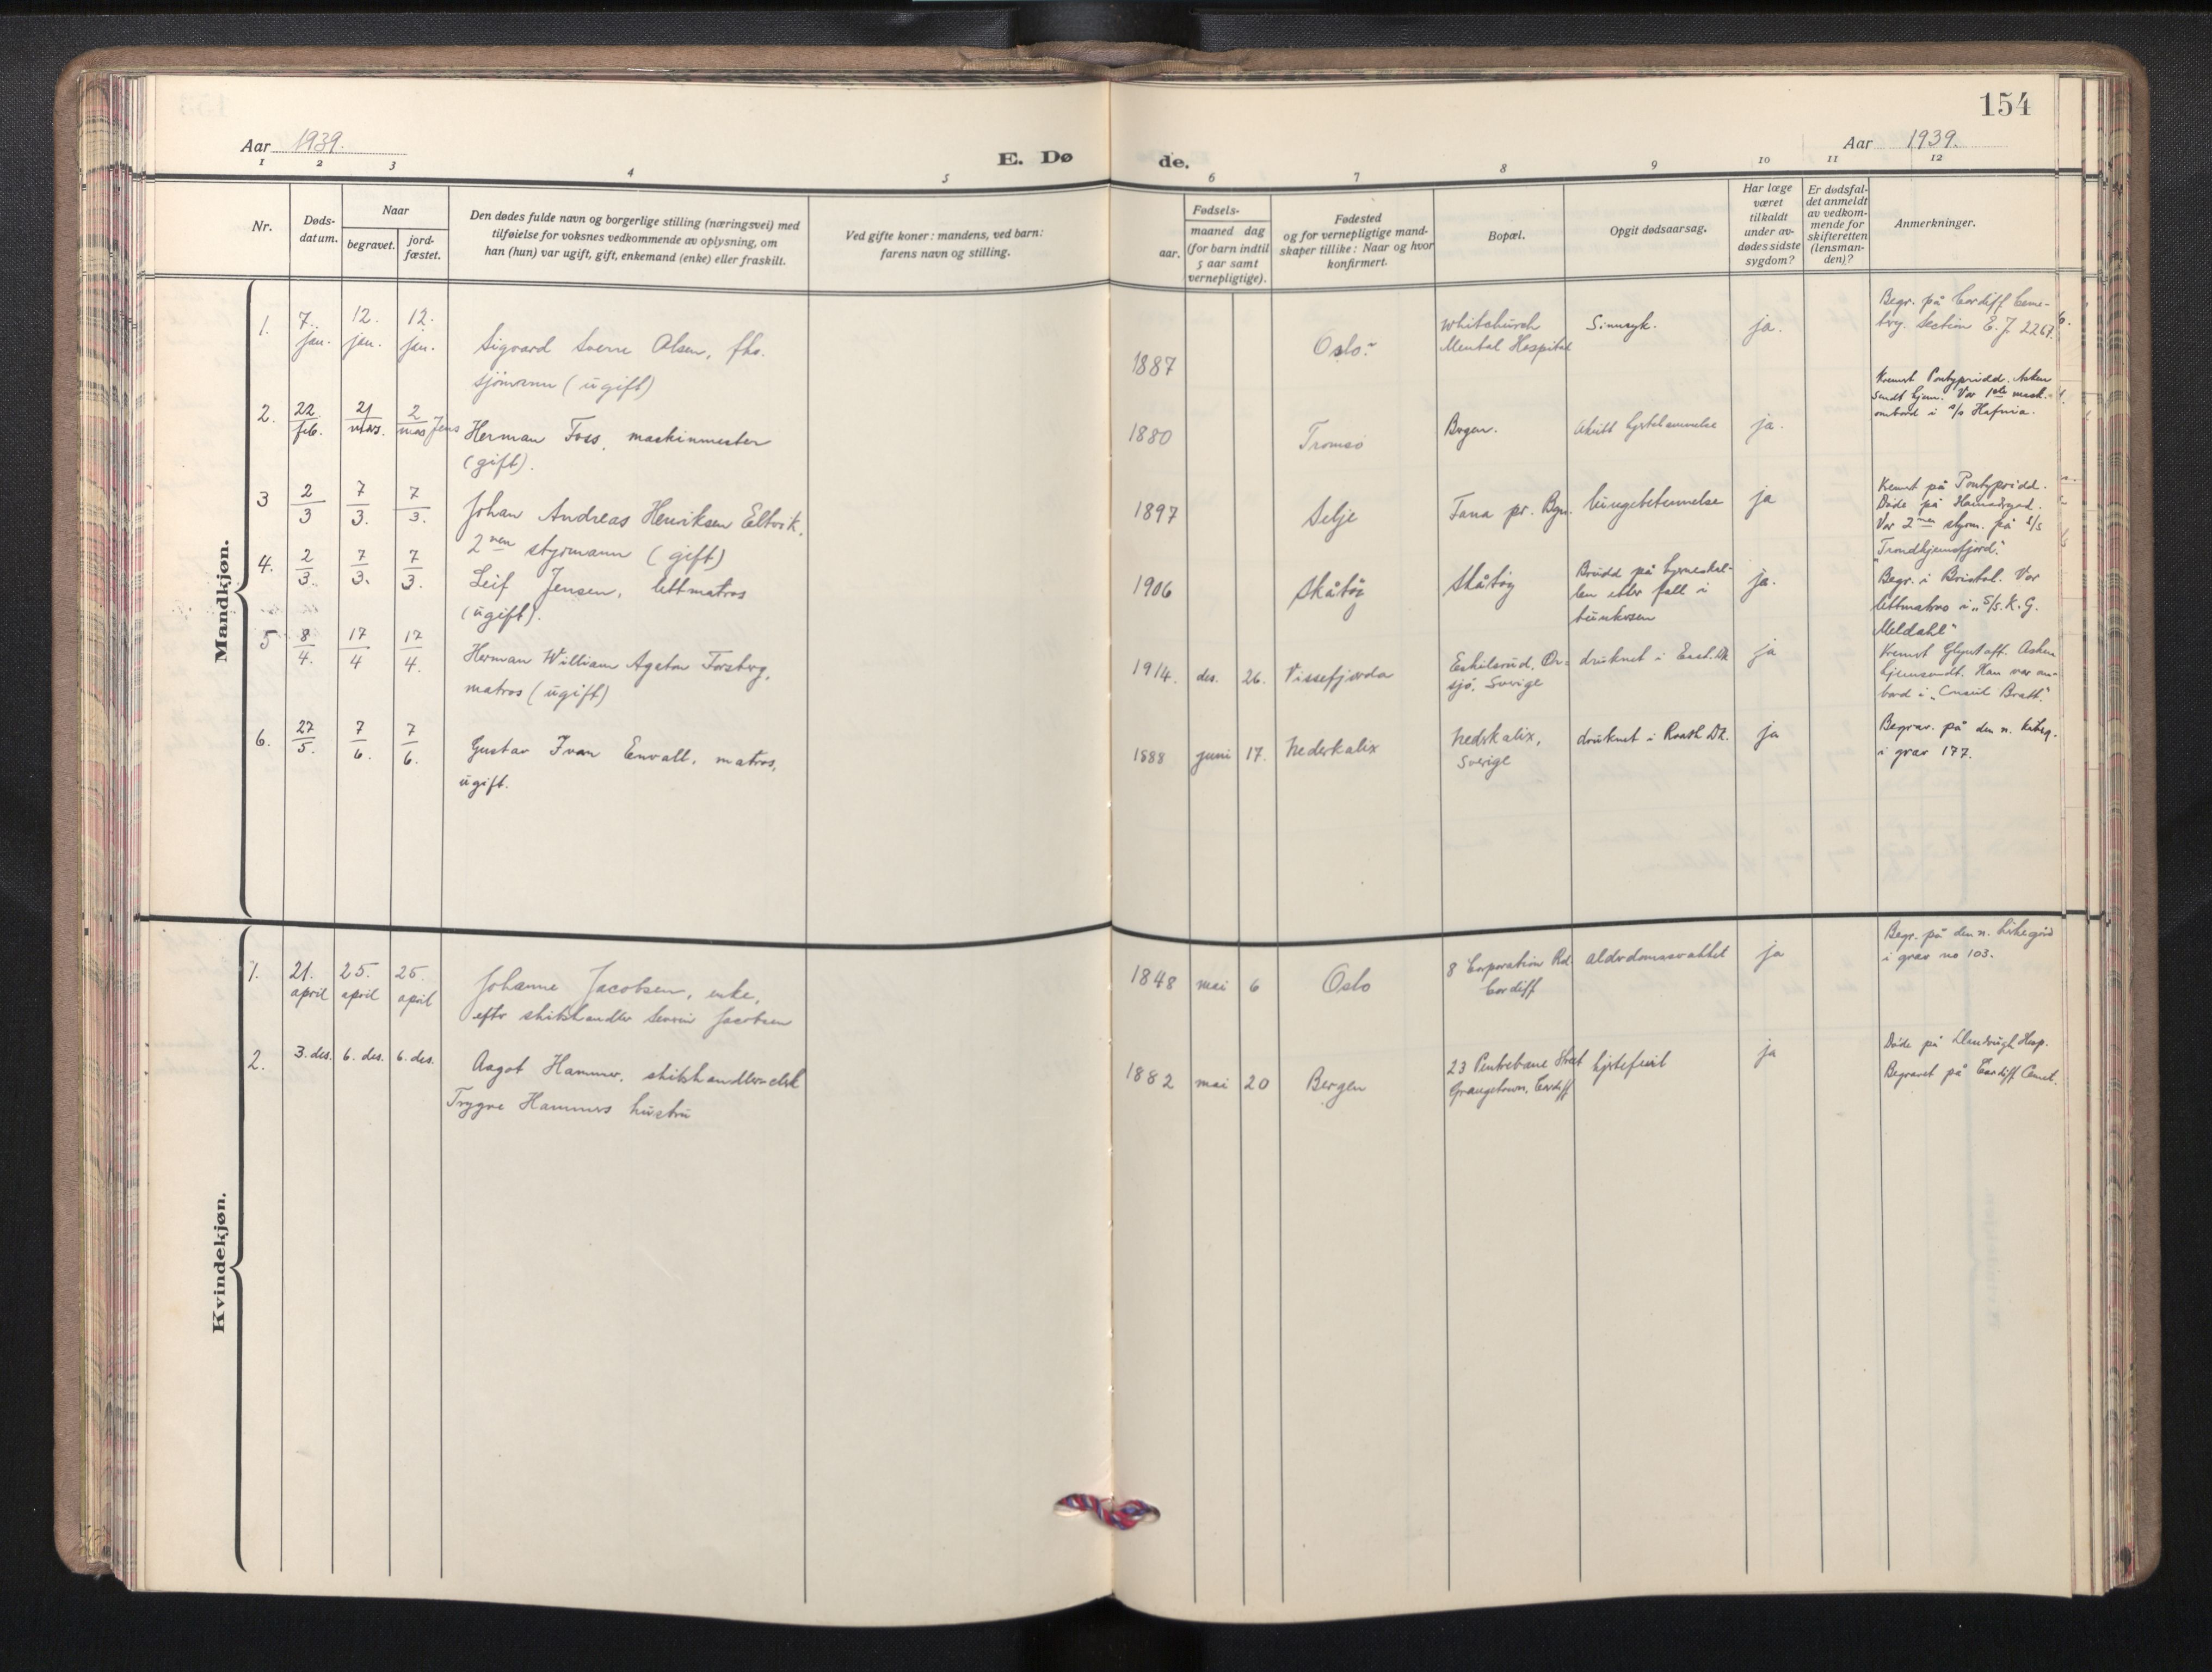 154
Aar 1939.
Aar 1939.
E. Dø
de.
1 2 3 4 5 6 7 8 9 10 11 12
Nr.
Døds-
datum.
Naar
begravet.
jord-
fæstet.
Den dødes fulde navn og borgerlige stilling (næringsvei) med
tilføielse for voksnes vedkommende av oplysning, om
han (hun) var ugift, gift, enkemand (enke) eller fraskilt.
Ved gifte koner: mandens, ved barn:
farens navn og stilling.
Fødsels-
aar.
maaned dag
(for barn indtil
5 aar samt
vernepligtige).
Fødested
og for vernepligtige mand-
skaper tillike: Naar og hvor
konfirmert.
Bopæl.
Opgit dødsaarsag.
Har læge
været
tilkaldt
under av-
dødes sidste
sygdom?
Er dødsfal-
det anmeldt
av vedkom-
mende for
skifteretten
(lensman-
den)?
Anmerkninger.
Mandkjøn.
1. 7. jan. 12. jan. 12. jan.
Sigvard Sverre Olsen, fhv.
sjömann (ugift)
1887
Oslo.
Whitchurch
Mental Hospital
Sinnsyk.
ja.
Begr. på Cardiff Ceme-
tery. Section E.J. 2267.
2. 22. feb. 21 mars. 2 mars
Herman Foss, maskinmester
(gift).
1880
Tromsö
Bergen.
Akutt hjertelammelse
ja.
Kremert Pontypridd. Asken
sendt hjem. Var 1ste mask.
ombord i s/s Hafnia.
3 2/3 7/3. 7/3.
Johan Andreas Henriksen Eltvik,
2nen styrmann (gift)
1897
Selje
Fana pr. Bgn.
lungebetennelse
ja
Kremt på Pontypridd.
Döde på
Var 2nen styrm. på s/s
"Trondhjemsfjord."
4. 2/3. 7/3. 7/3.
Leif Jensen, lettmatros
(ugift).
1906
Skåtöy
Skåtöy
Brudd på hjerneskal-
len etter fall i
bunkersen
ja.
Begr. i Bristol. Var
lettmatros i "S/s. K. G.
Meldahl"
5 8/4. 17/4 17/4.
Herman William Agaton Forsberg,
matros (ugift)
1914. des. 26.
Vissefjorda
Eskilsrud, Or-
sjö, Sverige
druknet i East. Dk
ja
Kremert Glyntaff. Asken
hjemsendt. Han var om-
bord i "Consul Bratt."
6. 27/5. 7/6. 7/6.
Gustav Ivan Envall, matros,
ugift.
1888 juni 17.
Nederkalix
Nederkalix,
Sverige
druknet i Roath Dk.
ja
Begrav. på den n. kirkeg.
i grav 177.
Kvindekjøn.
1. 21. april 25. april 25. april
Johanne Jacobsen, enke,
efter skibshandler Severin Jacobsen
1848 mai 6
Oslo
8 Corporation Rd.
Cardiff
alderdomssvakhet
ja
Begr. på den n. kirkegård
i grav no 103.
2. 3. des. 6. des. 6. des.
Aagot Hammer, skibshandler-clerk
Trygve Hammers hustru
1882 mai 20
Bergen
23 Pentrebane Street
Grangetown, Cardiff
hjertefeil
ja
Döde på Llandough Hosp.
Begravet på Cardiff Cemet.